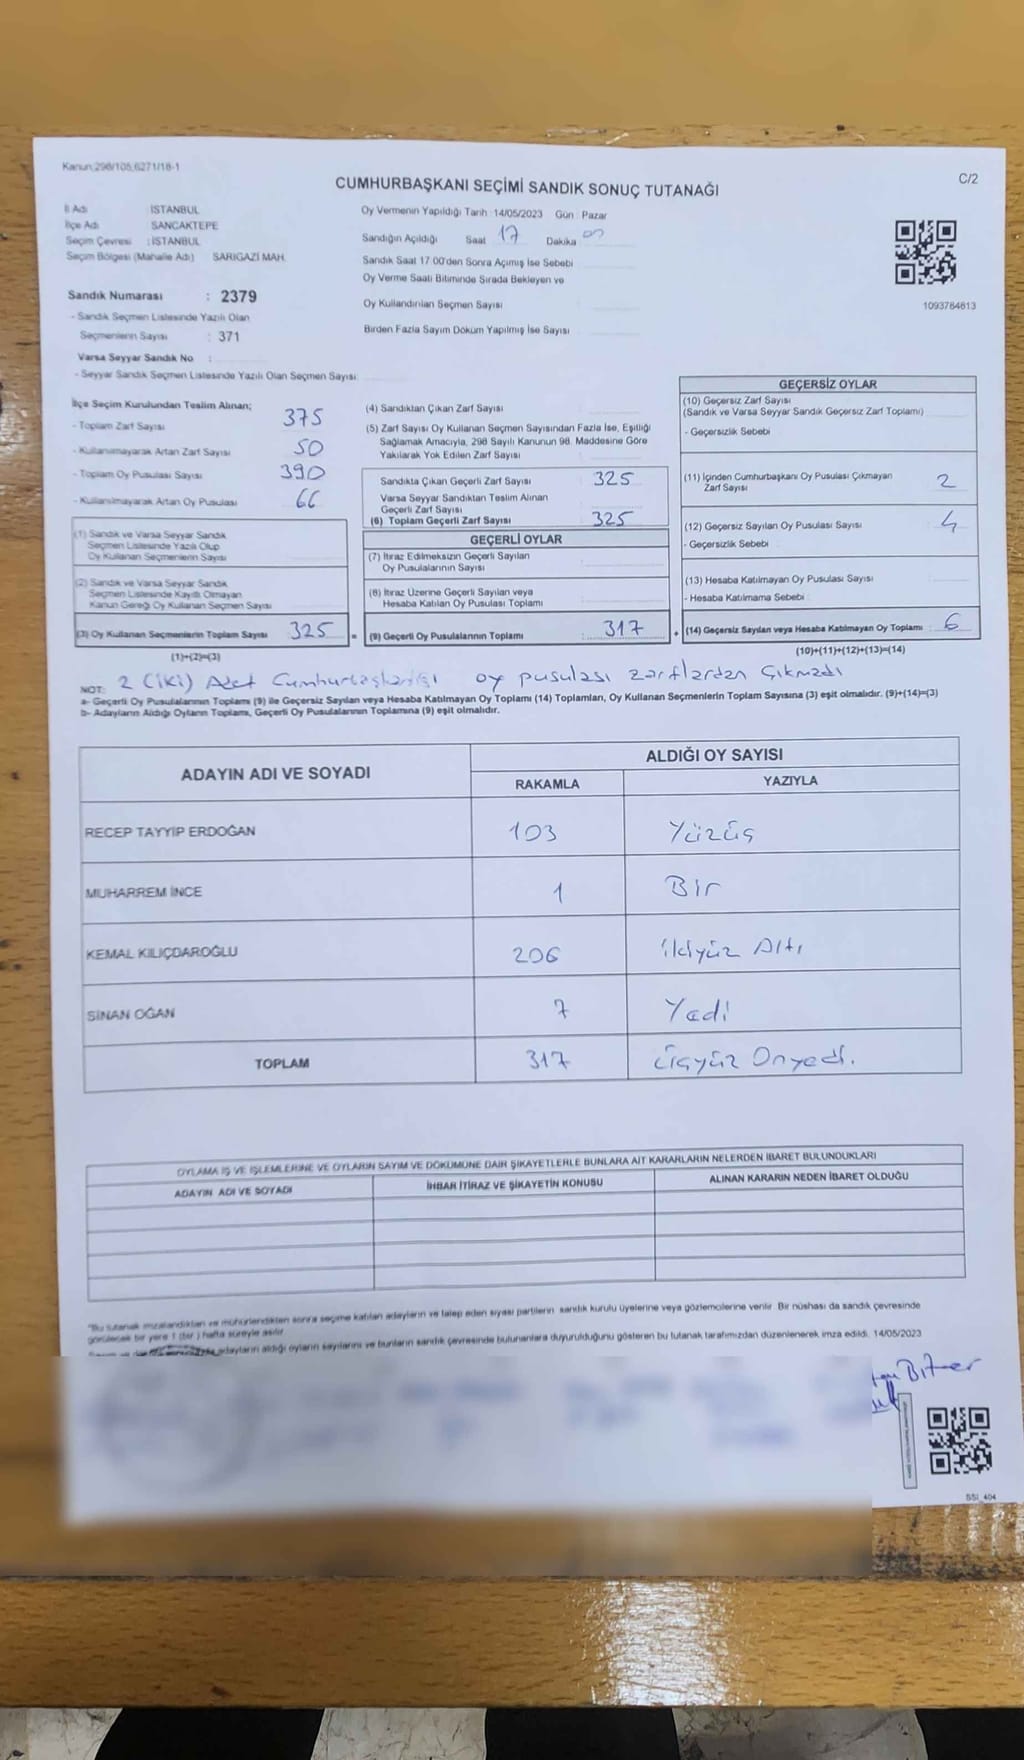 Kanun:298/105,6271/18-1
C/2
CUMHURBAŞKANI SEÇİMİ SANDIK SONUÇ TUTANAĞI
İl Adı : İSTANBUL
İlçe Adı : SANCAKTEPE
Seçim Çevresi : İSTANBUL
Seçim Bölgesi (Mahalle Adı) SARIGAZİ MAH.
Sandık Numarası : 2379
- Sandık Seçmen Listesinde Yazılı Olan
Seçmenlerin Sayısı : 371
Varsa Seyyar Sandık No :
- Seyyar Sandık Seçmen Listesinde Yazılı Olan Seçmen Sayısı:
Oy Vermenin Yapıldığı Tarih: 14/05/2023 Gün : Pazar
Sandığın Açıldığı Saat 17 Dakika 00
Sandık Saat 17:00'den Sonra Açılmış İse Sebebi
Oy Verme Saati Bitiminde Sırada Bekleyen ve
Oy Kullandırılan Seçmen Sayısı
Birden Fazla Sayım Döküm Yapılmış İse Sayısı
1093784813
İlçe Seçim Kurulundan Teslim Alınan;
- Toplam Zarf Sayısı 375
- Kullanılmayarak Artan Zarf Sayısı 50
- Toplam Oy Pusulası Sayısı 390
- Kullanılmayarak Artan Oy Pusulası 66
(1) Sandık ve Varsa Seyyar Sandık
Seçmen Listesinde Yazılı Olup
Oy Kullanan Seçmenlerin Sayısı
(2) Sandık ve Varsa Seyyar Sandık
Seçmen Listesinde Kayıtlı Olmayan
Kanun Gereği Oy Kullanan Seçmen Sayısı
(3) Oy Kullanan Seçmenlerin Toplam Sayısı 325
(1)+(2)=(3)
(4) Sandıktan Çıkan Zarf Sayısı
(5) Zarf Sayısı Oy Kullanan Seçmen Sayısından Fazla İse, Eşitliği
Sağlamak Amacıyla, 298 Sayılı Kanunun 98. Maddesine Göre
Yakılarak Yok Edilen Zarf Sayısı
Sandıkta Çıkan Geçerli Zarf Sayısı 325
Varsa Seyyar Sandıktan Teslim Alınan
Geçerli Zarf Sayısı
(6) Toplam Geçerli Zarf Sayısı 325
GEÇERLİ OYLAR
(7) İtiraz Edilmeksizin Geçerli Sayılan
Oy Pusulalarının Sayısı
(8) İtiraz Üzerine Geçerli Sayılan veya
Hesaba Katılan Oy Pusulası Toplamı
= (9) Geçerli Oy Pusulalarının Toplamı : 317
GEÇERSİZ OYLAR
(10) Geçersiz Zarf Sayısı
(Sandık ve Varsa Seyyar Sandık Geçersiz Zarf Toplamı)
- Geçersizlik Sebebi
(11) İçinden Cumhurbaşkanı Oy Pusulası Çıkmayan
Zarf Sayısı 2
(12) Geçersiz Sayılan Oy Pusulası Sayısı 4
- Geçersizlik Sebebi
(13) Hesaba Katılmayan Oy Pusulası Sayısı
- Hesaba Katılmama Sebebi
+ (14) Geçersiz Sayılan veya Hesaba Katılmayan Oy Toplamı : 6
(10)+(11)+(12)+(13)=(14)
NOT: 2 (iki) Adet Cumhurbaşkanlığı oy pusulası zarflardan Çıkmadı
a- Geçerli Oy Pusulalarının Toplamı (9) ile Geçersiz Sayılan veya Hesaba Katılmayan Oy Toplamı (14) Toplamları, Oy Kullanan Seçmenlerin Toplam Sayısına (3) eşit olmalıdır. (9)+(14)=(3)
b- Adayların Aldığı Oyların Toplamı, Geçerli Oy Pusulalarının Toplamına (9) eşit olmalıdır.
ADAYIN ADI VE SOYADI
ALDIĞI OY SAYISI
RAKAMLA YAZIYLA
RECEP TAYYİP ERDOĞAN 103 Yüzüç
MUHARREM İNCE 1 Bir
KEMAL KILIÇDAROĞLU 206 ikiyüz Altı
SİNAN OĞAN 7 Yedi
TOPLAM 317 üçyüz Onyedi.
OYLAMA İŞ VE İŞLEMLERİNE VE OYLARIN SAYIM VE DÖKÜMÜNE DAİR ŞİKAYETLERLE BUNLARA AİT KARARLARIN NELERDEN İBARET BULUNDUKLARI
ADAYIN ADI VE SOYADI İHBAR İTİRAZ VE ŞİKAYETİN KONUSU ALINAN KARARIN NEDEN İBARET OLDUĞU
"Bu tutanak imzalandıktan ve mühürlendikten sonra seçime katılan adayların ve talep eden siyasi partilerin sandık kurulu üyelerine veya gözlemcilerine verilir. Bir nüshası da sandık çevresinde
görülecek bir yere 1 (bir ) hafta süreyle asılır.
adayların aldığı oyların sayılarını ve bunların sandık çevresinde bulunanlara duyurulduğunu gösteren bu tutanak tarafımızdan düzenlenerek imza edildi. 14/05/2023
SSİ_404